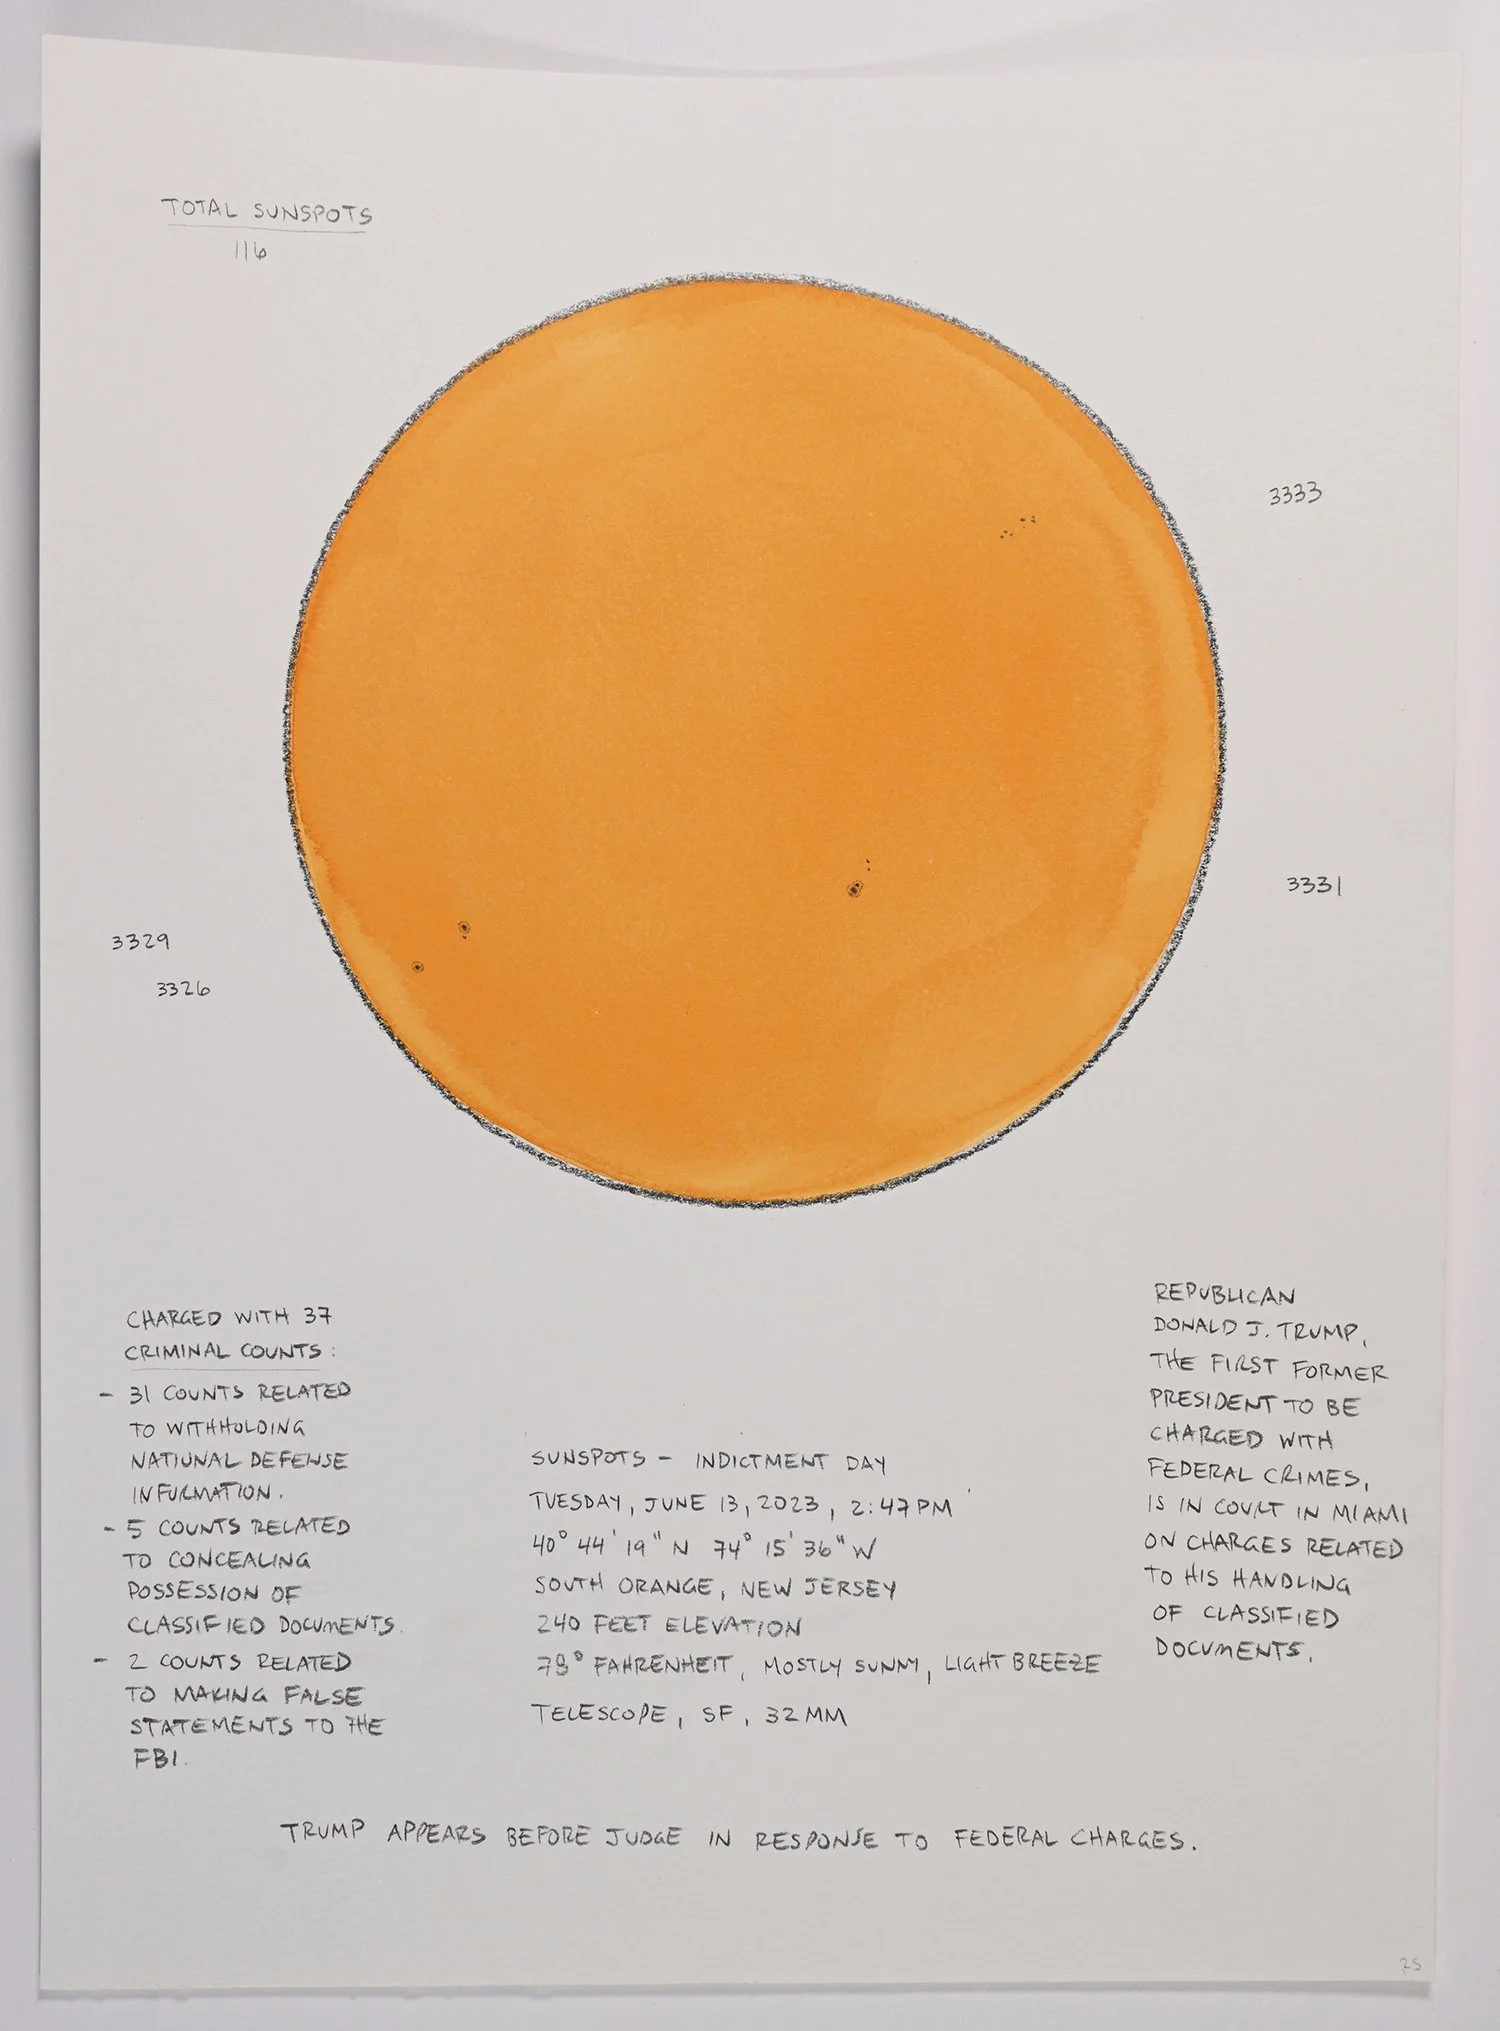 TOTAL SUNSPOTS
116
3333
3331
3329
3326
CHARGED WITH 37
CRIMINAL COUNTS:
- 31 COUNTS RELATED
TO WITHHOLDING
NATIONAL DEFENSE
INFORMATION.
- 5 COUNTS RELATED
TO CONCEALING
POSSESSION OF
CLASSIFIED DOCUMENTS.
- 2 COUNTS RELATED
TO MAKING FALSE
STATEMENTS TO THE
FBI.
SUNSPOTS - INDICTMENT DAY
TUESDAY, JUNE 13, 2023, 2:47 PM
40° 44' 19" N 74° 15' 36" W
SOUTH ORANGE, NEW JERSEY
240 FEET ELEVATION
78° FAHRENHEIT, MOSTLY SUNNY, LIGHT BREEZE
TELESCOPE, SF, 32MM
REPUBLICAN
DONALD J. TRUMP,
THE FIRST FORMER
PRESIDENT TO BE
CHARGED WITH
FEDERAL CRIMES,
IS IN COURT IN MIAMI
ON CHARGES RELATED
TO HIS HANDLING
OF CLASSIFIED
DOCUMENTS.
TRUMP APPEARS BEFORE JUDGE IN RESPONSE TO FEDERAL CHARGES.